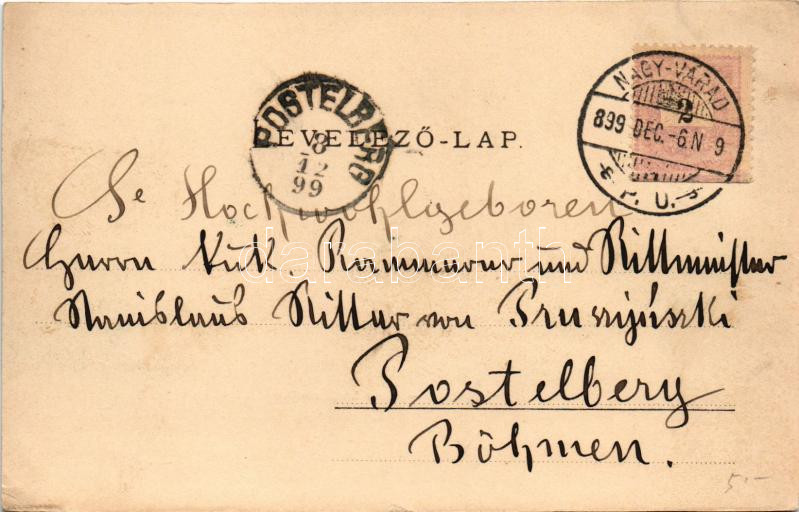 NAGY-VÁRAD
2
899 DEC.-6.N 9
P. U.
POSTELBERG
8
12
99
LEVELEZŐ-LAP.
Se Hochwohlgeboren
Herrn k.u.k. Kammerer und Rittmeister
Stanislaus Ritter von Pruszyński
Postelberg
Böhmen.
darabanth
5.-